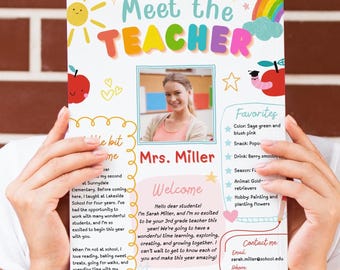 Meet the
TEACHER
Mrs. Miller
my second
year at Sunnydale
Elementary. Before coming
here, I taught at Lakeside
School for four years. I've
had the opportunity to
work with many wonderful
students, and I'm so
excited to add you to my
year with you.
When I'm not at school, I
love reading, baking sweet
treats, going for walks, and
Welcome
Hello dear students!
I'm Sarah Miller, and I'm so excited
to be your 3rd grade teacher this
year! We're going to have a
wonderful time learning, exploring,
creating, and growing together. I
can't wait to get to know each of
you and make this year amazing!
Favorites
Color: Sage green and
blush pink
Snack:
Drink: Berry
Season:
Animal:
retrievers
Hobby: Painting and
planting flowers
Contact me
Email:
sarah.miller@school.edu
Phone: